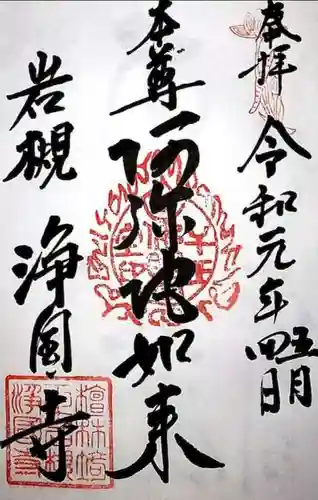 奉拝
令和元年
五月
四日
本尊
阿弥陀如来
岩槻
浄国寺